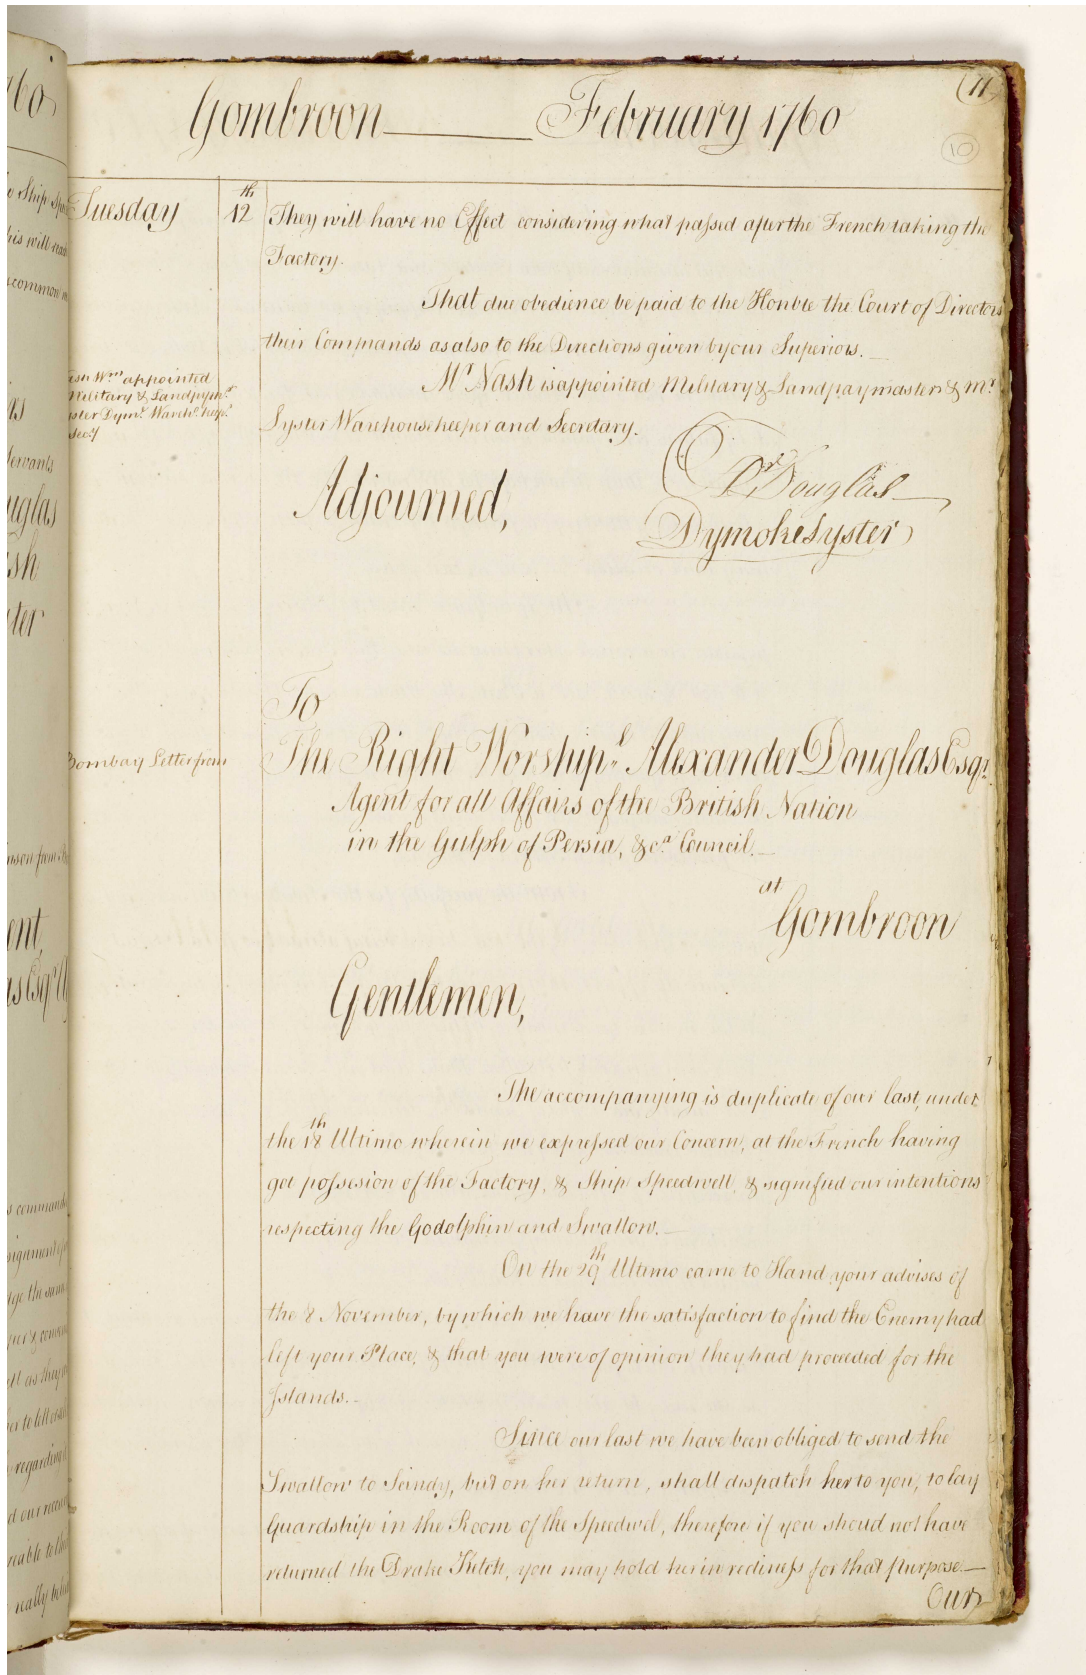 Gombroon February 1760
11
10
Tuesday 12th They will have no Effect considering what passed after the French taking the
Factory.
That due obedience be paid to the Honble the Court of Directors
their Commands as also to the Directions given by our Superiors.
Nash Wm appointed
Military & Landpaymr
Lyster Dymk Wareh. keepr
Secy
Mr Nash is appointed Military & Landpaymaster & Mr
Lyster Warehousekeeper and Secretary.
Adjourned,
Douglas
Dymoke Lyster
To
Bombay Letter from
The Right Worshipl Alexander Douglas Esqr
Agent for all Affairs of the British Nation
in the Gulph of Persia, &ca Council.
at
Gombroon
Gentlemen,
The accompanying is duplicate of our last, under
the 18th Ultimo wherein we expressed our Concern, at the French having
got possesion of the Factory, & Ship Speedwell, & signified our intentions
respecting the Godolphin and Swallow.
On the 29th Ultimo came to Hand your advises of
the 8 November, by which we have the satisfaction to find the Enemy had
left your Place, & that you were of opinion they had proceeded for the
Islands.
Since our last we have been obliged to send the
Swallow to Scindy, but on her return, shall dispatch her to you, to lay
Guardship in the Room of the Speedwel, therefore if you should not have
returned the Drake Ketch, you may hold her in rediness for that purpose
Our